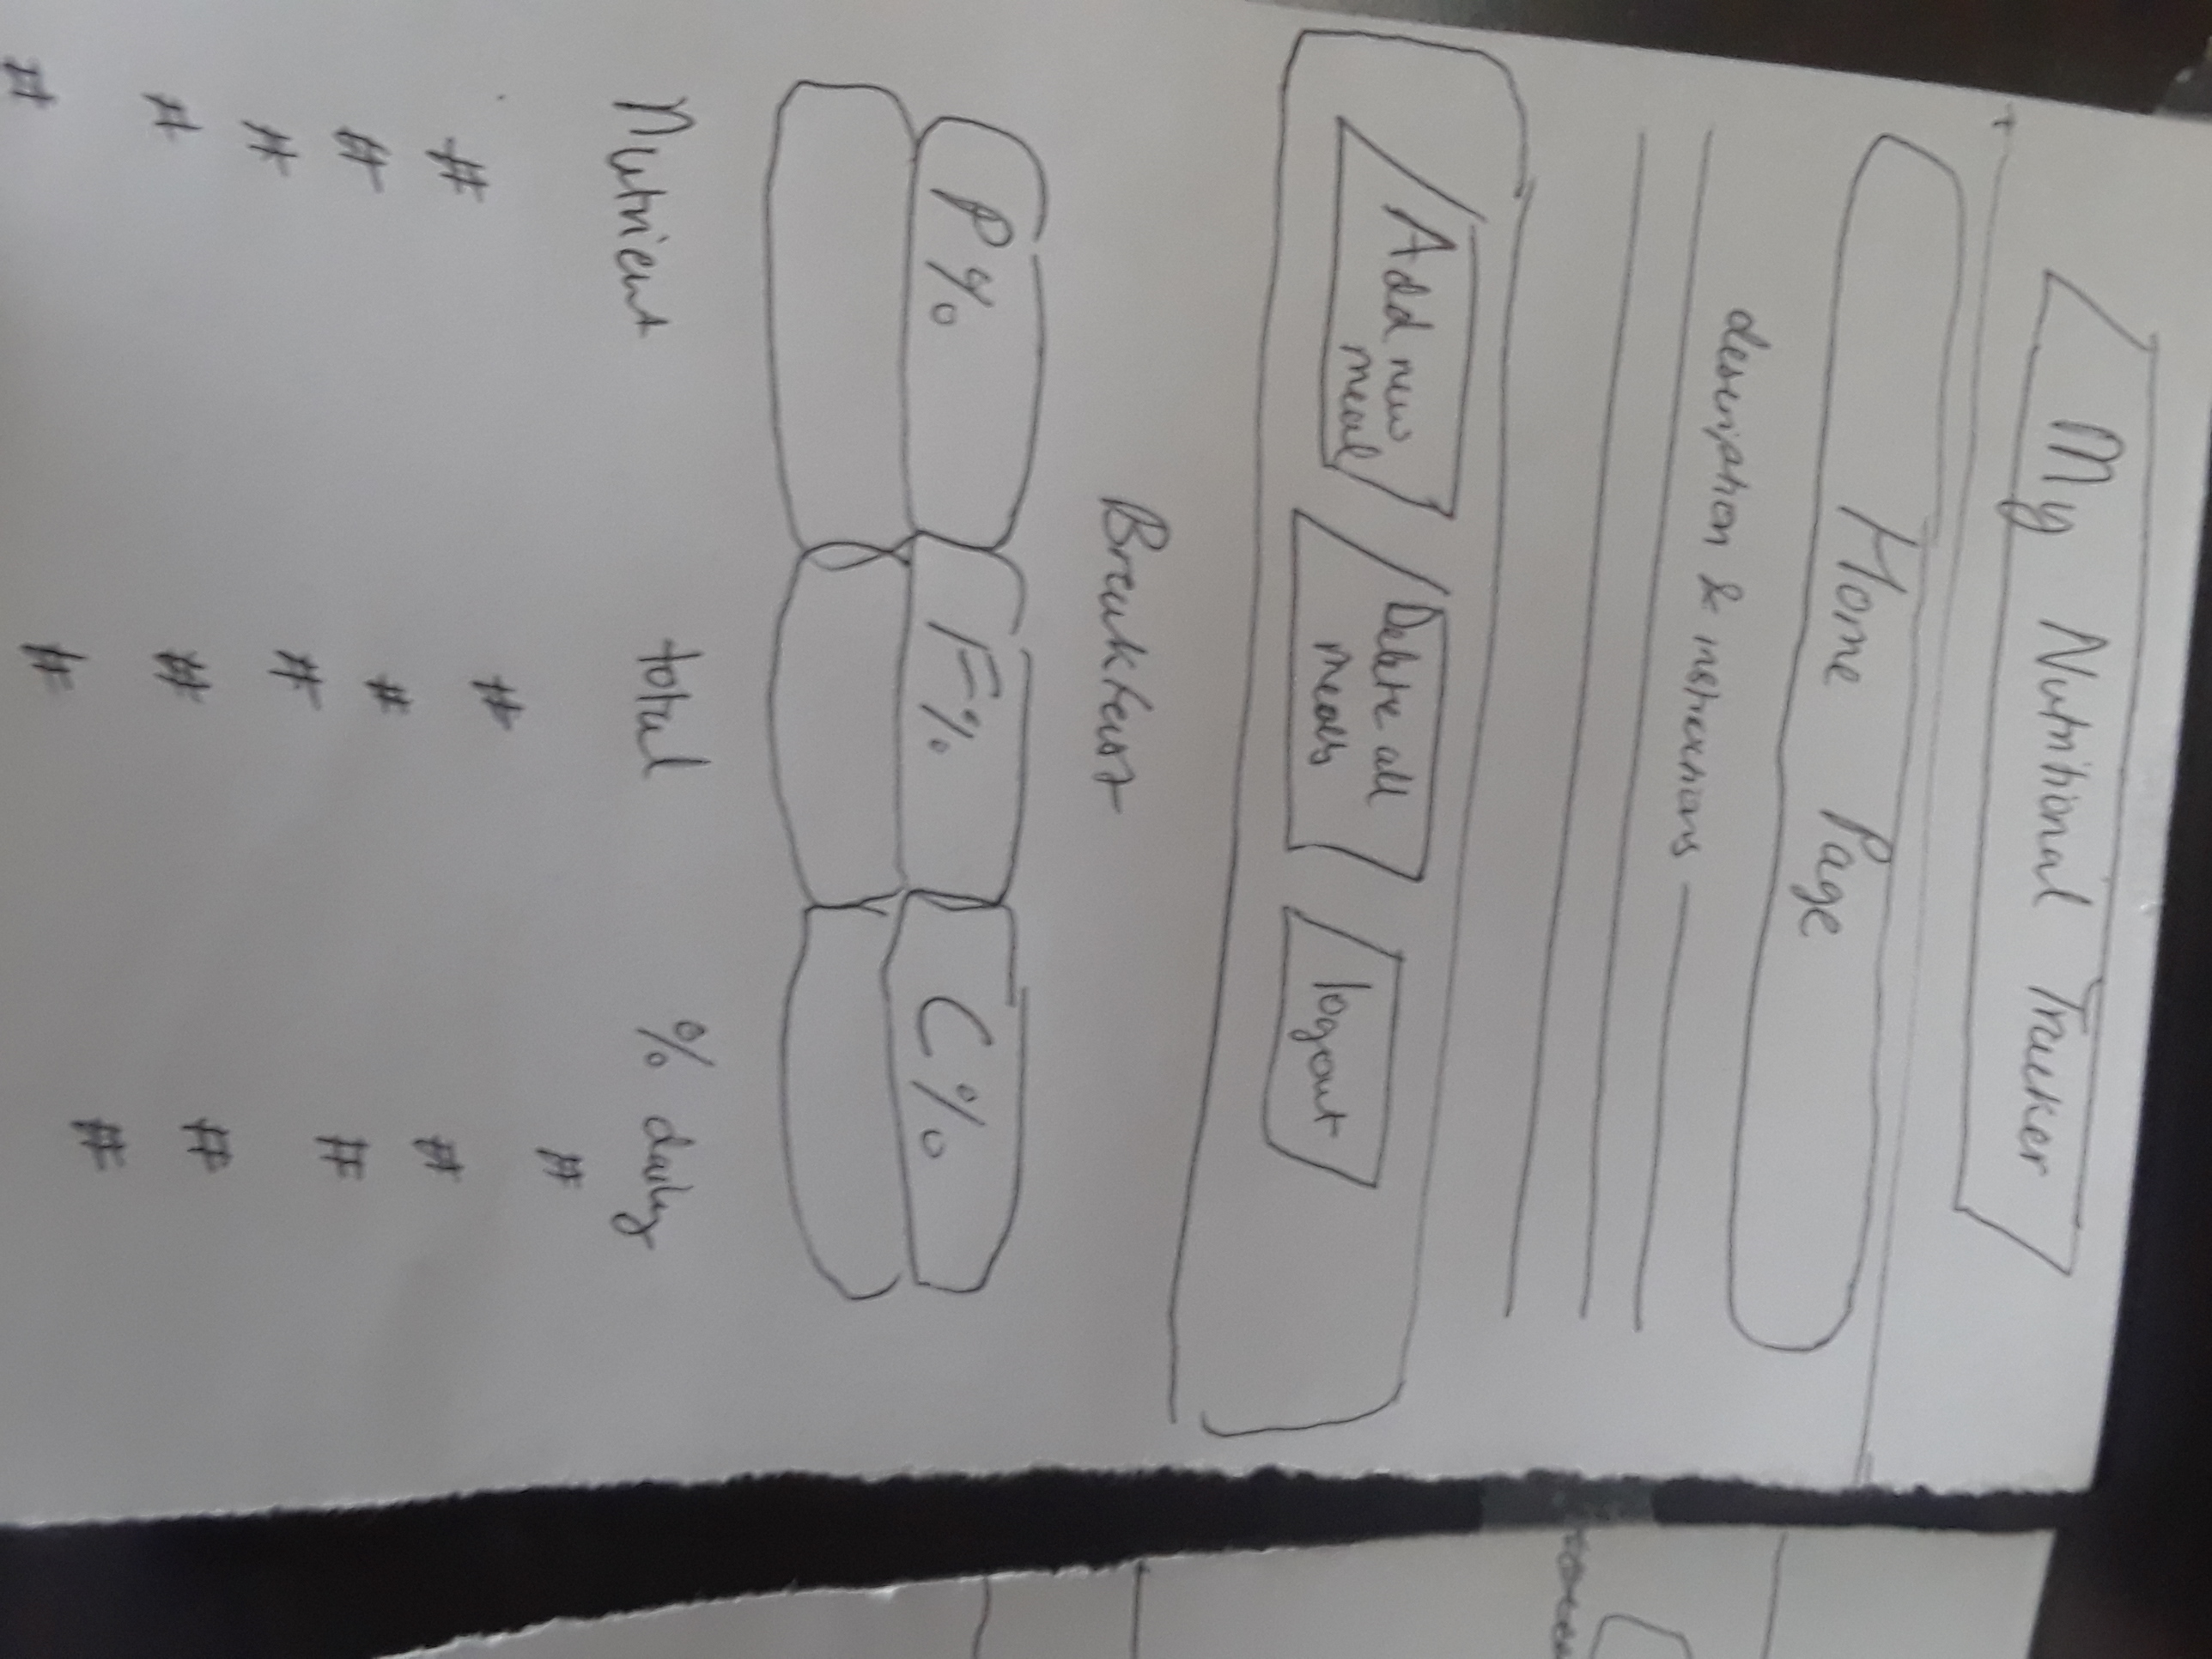 My Nutritional Tracker
Home Page
description & instructions
Add new meal
Delete all meals
logout
Breakfast
P% F% C%
Nutrient total % daily
# # #
# # #
# # #
# # #
# # #